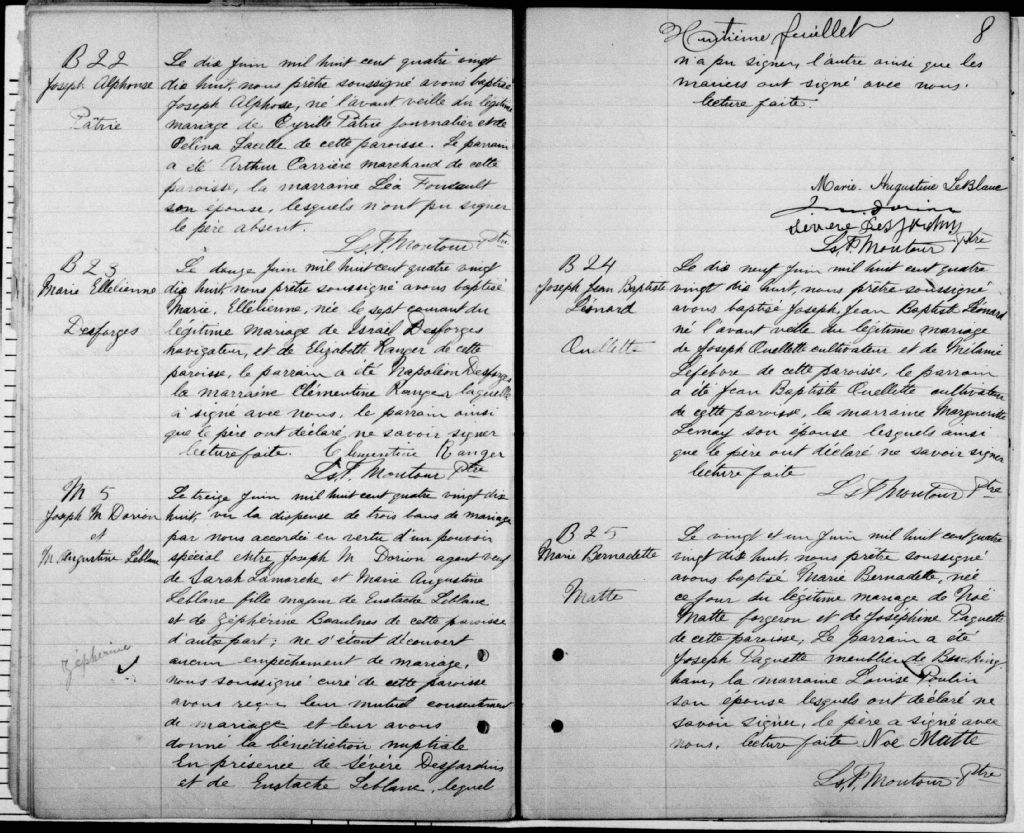 B 22
Joseph Alphonse
Pâtrie
Le dix Juin mil huit cent quatre vingt
dix huit, nous prêtre soussigné avons baptisé
Joseph Alphose, né l'avant veille du légitime
mariage de Cyrille Pâtrie journalier et de
Célina Lacelle de cette paroisse. Le parrain
a été Arthur Carrière marchand de cette
paroisse, la marraine Léa Foucault
son épouse, lesquels n'ont pu signer
le père absent.
Ls. P. Montour Ptre
B 23
Marie Ellélienne
Desforges
Le douze Juin mil huit cent quatre vingt
dix huit, nous prêtre soussigné avons baptisé
Marie, Ellélienne, née le sept courant du
légitime mariage de Israël Desforges
navigateur, et de Elizabeth Ranger de cette
paroisse, le parrain a été Napoléon Desforges
la marraine Clémentine Ranger laquelle
a signé avec nous, le parrain ainsi
que le père ont déclaré ne savoir signer
lecture faite. Clementine Ranger
Ls. P. Montour Ptre
M 5
Joseph M Dorion
et
M. Augustine Leblanc
Zépherine
Le treize Juin mil huit cent quatre vingt dix
huit, vu la dispense de trois bans de mariage
par nous accordée en vertu d'un pouvoir
spécial entre Joseph M. Dorion agent veuf
de Sarah Lamarche, et Marie Augustine
Leblanc fille majeur de Eustache Leblanc
et de Zépherine Beaulnes de cette paroisse
d'autre part; ne s'étant découvert
aucun empêchement de mariage,
nous soussigné curé de cette paroisse
avons reçu leur mutuel consentement
de mariage et leur avons
donné la bénédiction nuptiale
En présence de Sévère Desjardins
et de Eustache Leblanc, lequel
Huitième feuillet 8
n'a pu signer, l'autre ainsi que les
mariés ont signé avec nous.
lecture faite.
Marie-Augustine LeBlanc
J. M. Dorion
Severe Desjardins
Ls. P. Montour Ptre
B 24
Joseph Jean Baptiste
Léonard
Ouellette
Le dix neuf Juin mil huit cent quatre
vingt dix huit, nous prêtre soussigné
avons baptisé Joseph, Jean Baptist Léonard
né l'avant veille du légitime mariage
de Joseph Ouellette cultivateur et de Mélanie
Lefebvre de cette paroisse, le parrain
a été Jean Baptiste Ouellette cultivateur
de cette paroisse, la marraine Marguerite
Lemay son épouse lesquels ainsi
que le père ont déclaré ne savoir signer
lecture faite
Ls. P. Montour Ptre
B 25
Marie Bernadette
Matte
Le vingt et un Juin mil huit cent quatre
vingt dix huit, nous prêtre soussigné
avons baptisé Marie Bernadette, née
ce jour du légitime mariage de Noë
Matte forgeron et de Joséphine Paquette
de cette paroisse, Le parrain a été
Joseph Paquette meublier de Bucking
ham, la marraine Louise Poulin
son épouse lesquels ont déclaré ne
savoir signer, le père a signé avec
nous. lecture faite Noé Matte
Ls. P. Montour Ptre